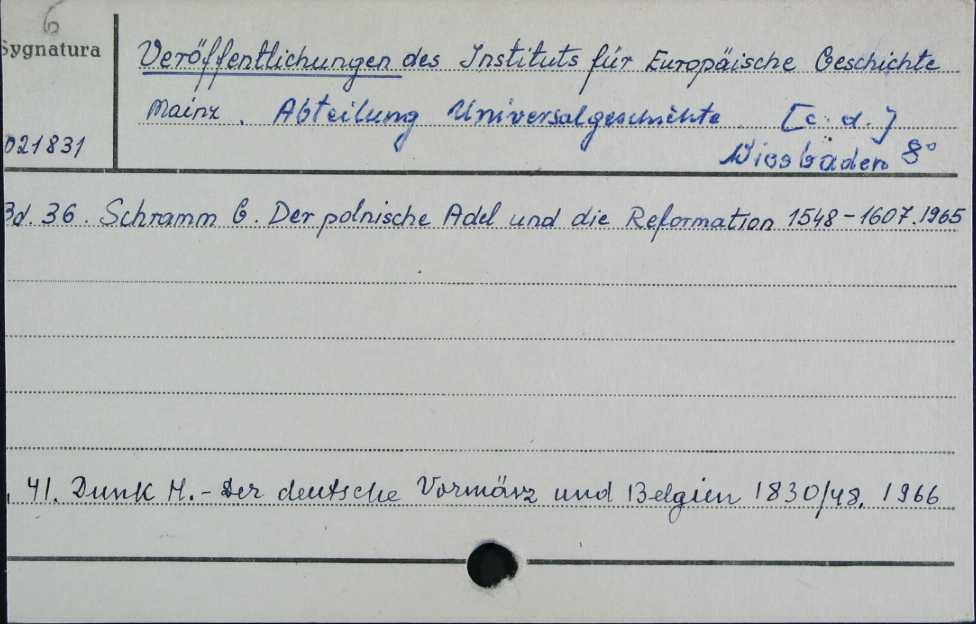 6
Sygnatura
Veröffentlichungen des Instituts für Europäische Geschichte
Mainz. Abteilung Universalgeschichte [c. d.]
021831
Wiesbaden 8°
Bd. 36. Schramm G. Der polnische Adel und die Reformation 1548-1607. 1965
. 41. Dunk H. - Der deutsche Vormärz und Belgien 1830/48. 1966